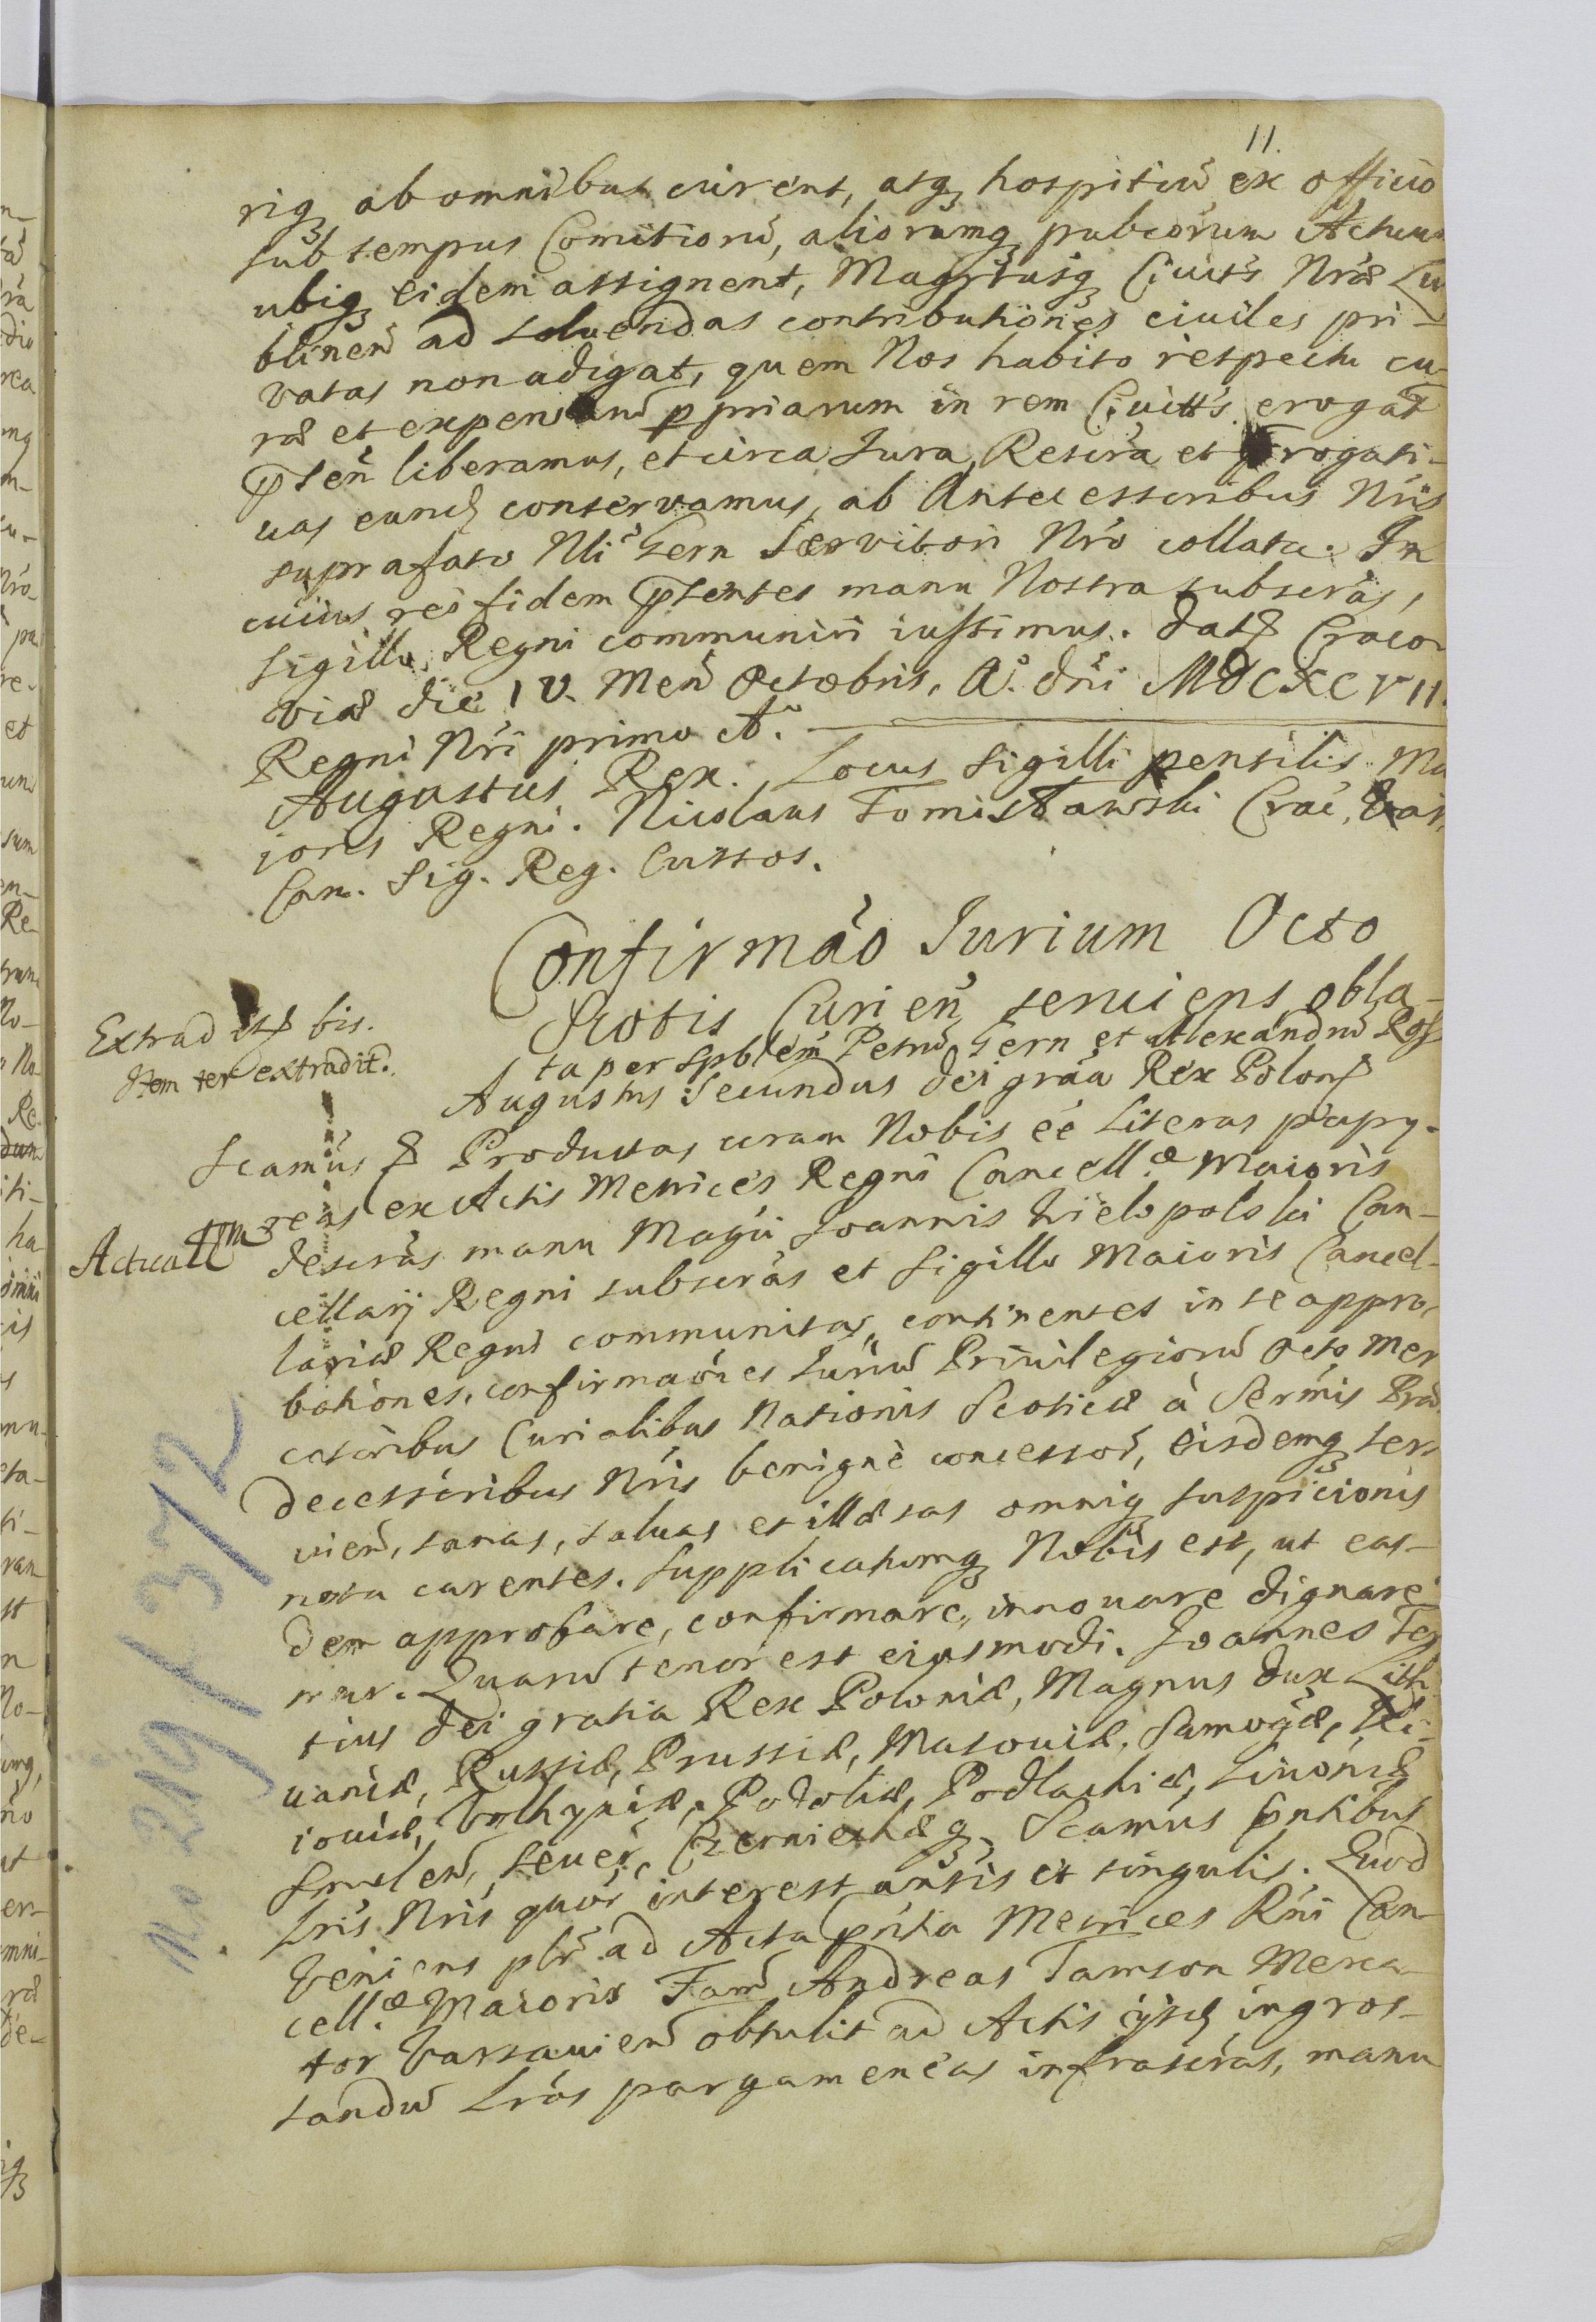 11.
rigꝫ ab omnibus curent, atqꝫ hospitiū ex officio
sub tempus Comitiorū, aliorumqꝫ pubcorum Actuum
ubiqꝫ eidem assignent, Magrtusqꝫ Ciuitis Nræ Lu
blinen̄ ad soluendas contributiones ciuiles pri-
vatas non adigat, quem Nos habito respectu cu-
ræ et expensarū ꝓpriarum in rem Ciuittis erogat
pñten̄ liberamus, et circa Iura, Rescra et Prærogati-
uas eund conservamus, ab Antecessoribus Nris
suprafato Nli Fern Servitori Nro collata. In
cuius rei fidem pñtentes manu Nostra subscras,
sigillo Regni communiri iussimus. Dat Craco
viæ die IV. Men Octobris, Ao. Dni MDCXCVII.
Regni Nri primo Ao.
Augustus Rex. Locus Sigilli pensilis Ma
joris Regni. Nicolaus Tomisławski Crac,
Can. Sig. Reg. Custos.
Confirmao Iurium Octo
Scotis Curien seruiens obla-
ta per Spblem Petrū Fern et Alexandrū Ross
Extradit bis.
Item ter extradit.
Augustus Secundus Dei graa Rex Polon
Scamus Productas coram Nobis ee Literas papy-
reas ex Actis Metrices Regni Cancellæ Maioris
Actuatt
descras manu Magci Joannis Wielopolski Can-
cellarij Regni subscras et sigillo Maioris Cancel-
lariæ Regni communitas, continentes in se appro-
bationes, confirmaones Iuriū Priuilegiorū Octo Mer
catoribus Curialibus Nationis Scoticæ à Sermis Præ
decessoribus Nris benignè concessor, eisdemqꝫ ser-
uien, sanas, saluas et illæsas omniqꝫ suspicionis
nota carentes. Supplicatumqꝫ Nobis est, ut eas-
dem approbare, confirmare, innouare dignare-
mur. Quarū tenor est eiusmodi. Joannes Ter
tius Dei gratia Rex Poloniæ, Magnus Dux Lith
uaniæ, Russiæ, Prussiæ, Masouiæ, Samogæ, Ki-
iouiæ, Volhyniæ, Podoliæ, Podlachiæ, Liuoniæ
Smolen, Seuer, Czerniechæqꝫ Scamus pntibus
Lris Nris quor interest unsis et singulis. Quod
Veniens plr ad Acta pnta Metrices Rni Can
cellæ Maioris Fam Andreas Tamson Merca-
tor Varsauien obtulit ad Actis ijsd ingros-
sandū Lras pargameneas infrascras, manu
No 219 / 372